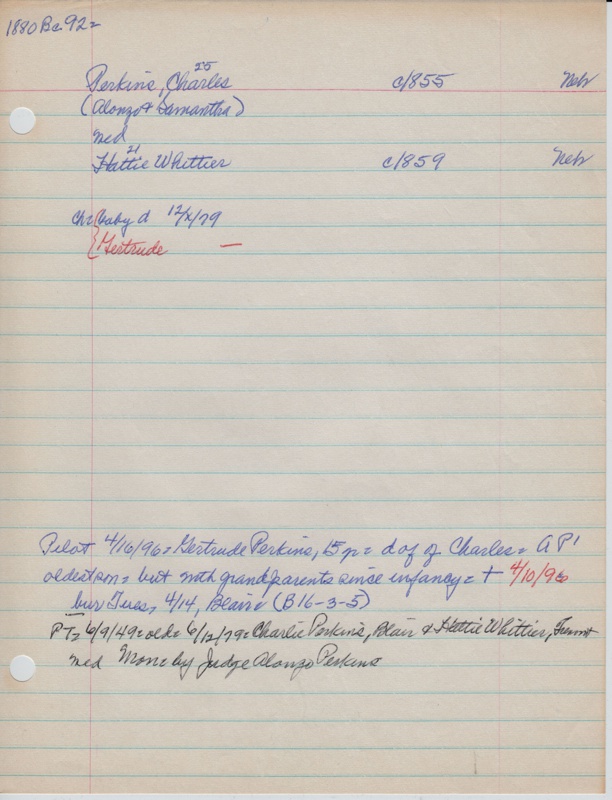 1880 Bc 92=
Perkins, Charles 25 c/855 Neb
(Alonzo & Samantha)
med
Hattie Whittier 21 c/859 Neb
ch baby d 12/x/79
Gertrude —
Pilot 4/16/96 = Gertrude Perkins, 15 y = d of Charles = A P's
oldest son = but with grandparents since infancy = † 4/10/96
bur Tues, 4/14, Blair (B16-3-5)
PT= 6/9/49 = old = 6/12/79 = Charlie Perkins, Blair & Hattie Whittier,
med Mon = by Judge Alonzo Perkins